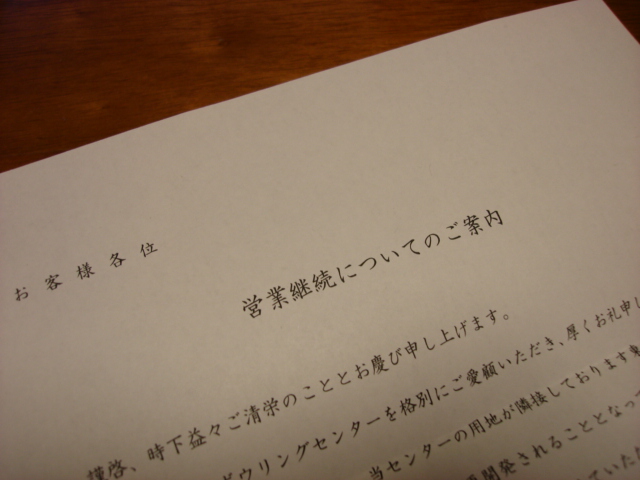 お客様各位
営業継続についてのご案内
謹啓、時下益々ご清栄のこととお慶び申し上げます。
ボウリングセンターを格別にご愛顧いただき、厚くお礼申し
当センターの用地が隣接しております
開発されることとなっ
ていた